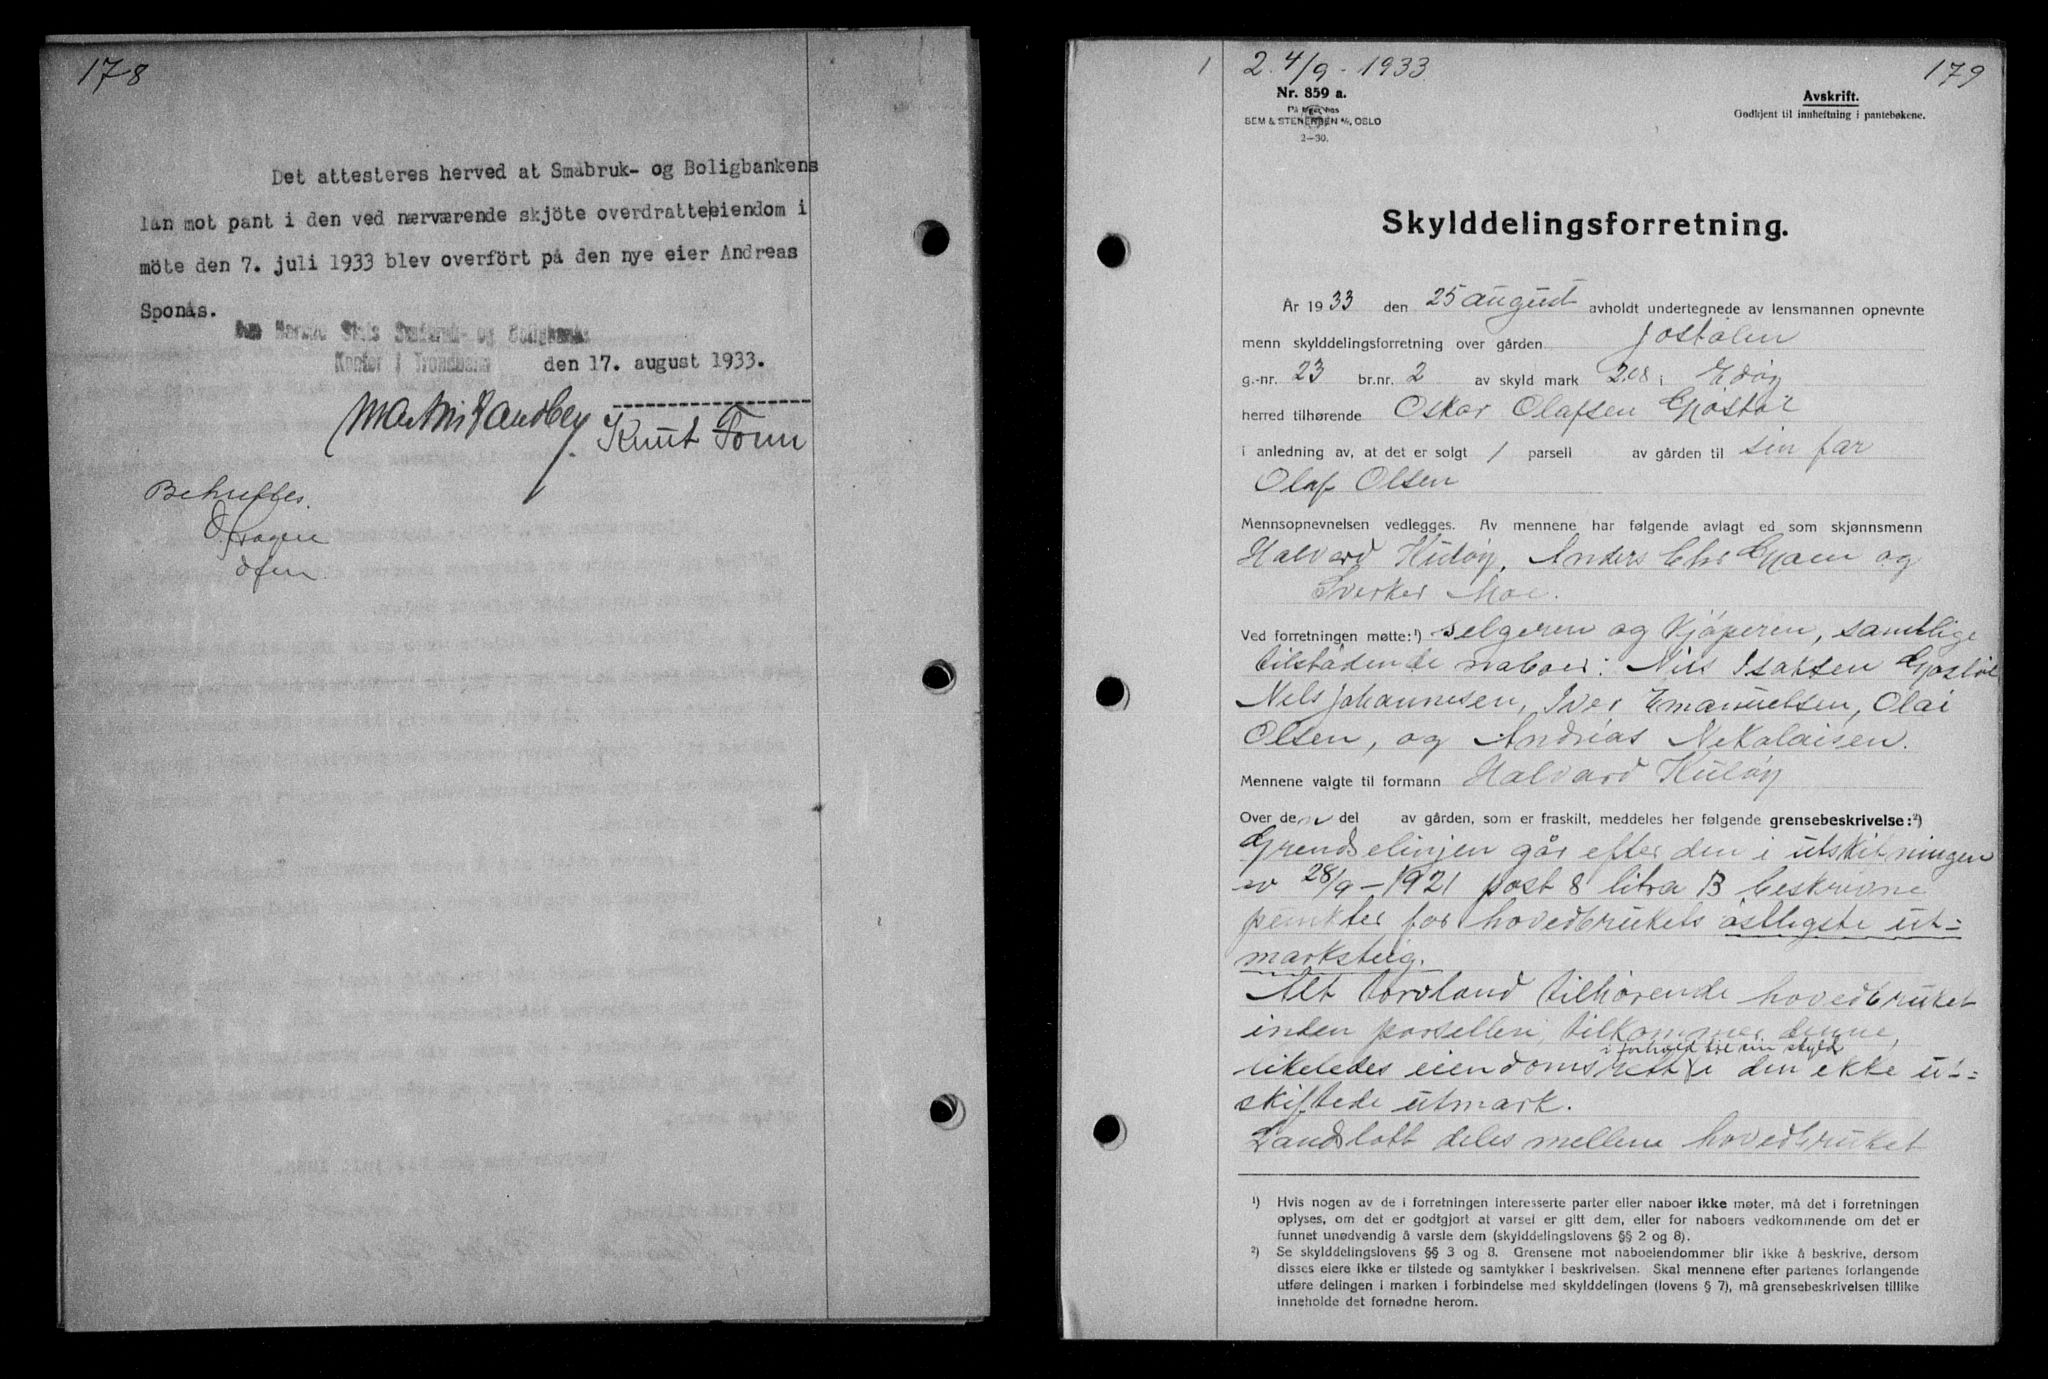 178
Det attesteres herved at Småbruk- og Boligbankens
lån mot pant i den ved nærværende skjöte overdratteeiendom i
möte den 7. juli 1933 blev overfört på den nye eier Andreas
Sponås.
Den Norske Stats Småbruk- og Boligbanks
Kontor i Trondheim den 17. august 1933.
Martin Sandberg
Knut Tonn
Bekreftes.
1 2. 4/9 - 1933 179
Nr. 859 a.
På lager hos
SEM & STENERSEN A/S, OSLO
2-30.
Avskrift.
Godkjent til innheftning i pantebøkene.
Skylddelingsforretning.
År 1933 den 25 august avholdt undertegnede av lensmannen opnevnte
menn skylddelingsforretning over gården Jostølen
g.-nr. 23 br.nr. 2 av skyld mark 2.08 i Edøy
herred tilhørende Oskar Olafsen Gjostøl
i anledning av, at det er solgt 1 parsell av gården til sin far
Olaf Olsen
Mennsopnevnelsen vedlegges. Av mennene har følgende avlagt ed som skjønnsmenn
Halvard Kuløy, Anders Chr og
Sverker Moe.
Ved forretningen møtte: 1) selgeren og kjøperen, samtlige
tilstødende naboer: Nils Isaksen Gjostøl
Nels Johannesen, Iver Emanuelsen, Olai
Olsen, og Andreas Nekolaisen.
Mennene valgte til formann Halvard Kuløy
Over den del av gården, som er fraskilt, meddeles her følgende grensebeskrivelse: 2)
Grendselinjen går efter den i utskiftningen
av 28/9-1921 post 8 litra B beskrivne
punkter for hovedbrukets østligste ut=
marksteig.
Alt torvland tilhørende hovedbruket
inden parsellen, tilkommer denne,
i forhold til sin skyld
likeledes eiendomsrett i den ikke ut=
skiftede utmark.
Landslott deles mellem hovedbruket
1) Hvis nogen av de i forretningen interesserte parter eller naboer ikke møter, må det i forretningen
oplyses, om det er godtgjort at varsel er gitt dem, eller for naboers vedkommende om det er
funnet unødvendig å varsle dem (skylddelingslovens §§ 2 og 8).
2) Se skylddelingslovens §§ 3 og 8. Grensene mot naboeiendommer blir ikke å beskrive, dersom
disses eiere ikke er tilstede og samtykker i beskrivelsen. Skal mennene efter partenes forlangende
utføre delingen i marken i forbindelse med skylddelingen (lovens § 7), må grensebeskrivelsen tillike
inneholde det fornødne herom.